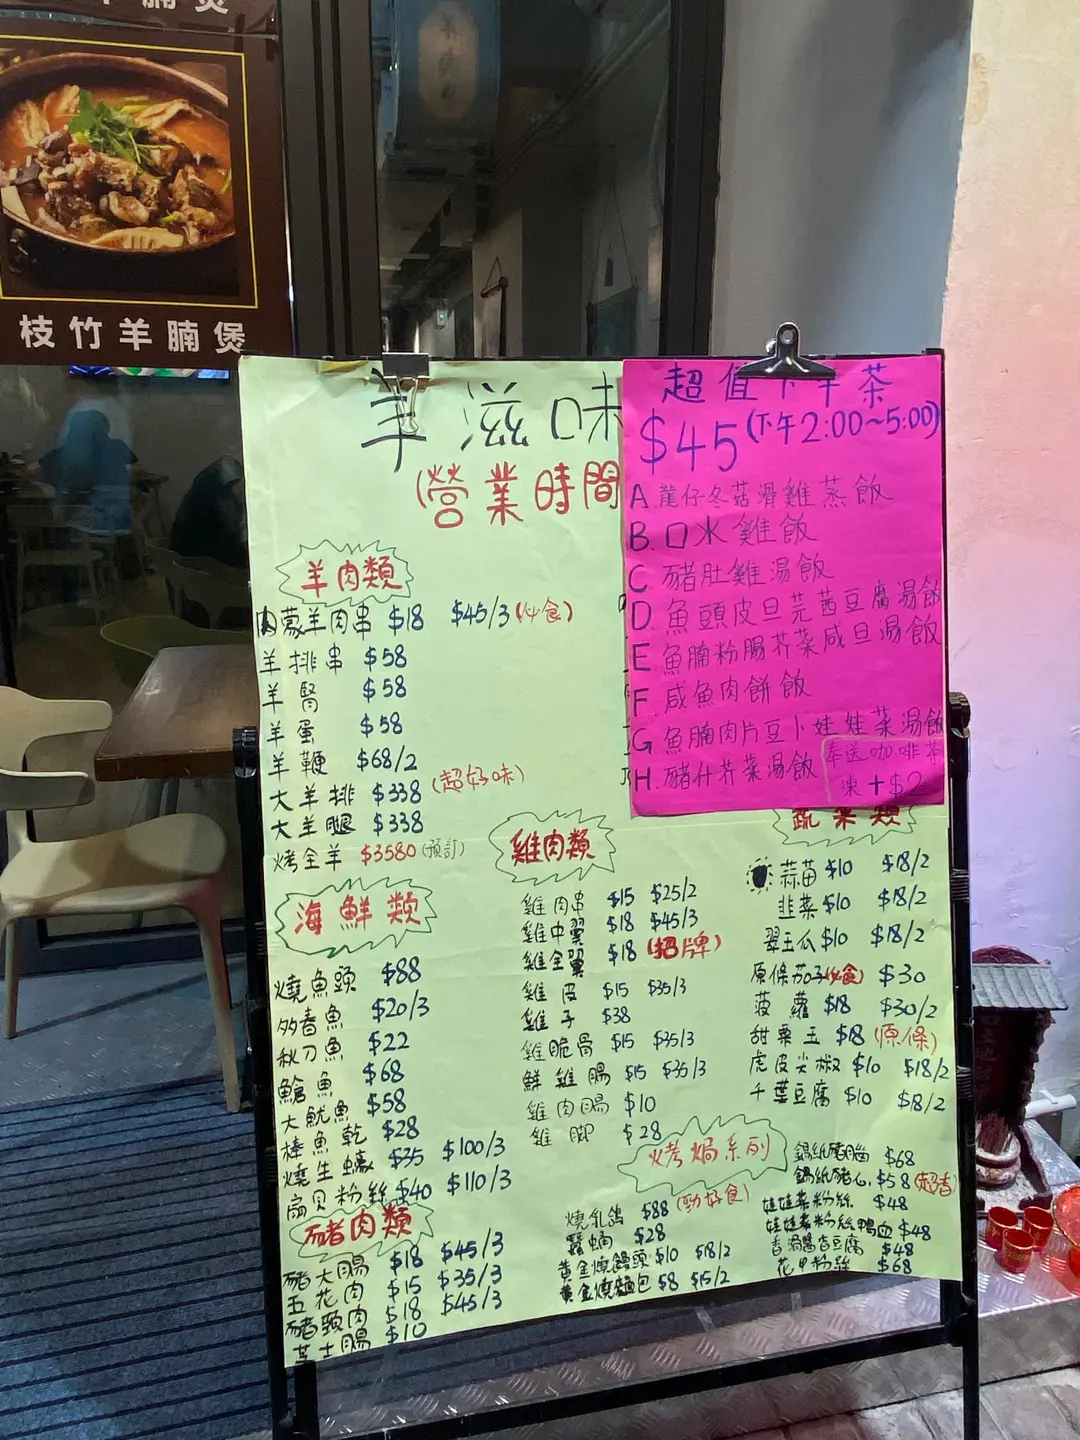 枝竹羊腩煲
羊滋味
(營業時間
羊肉類
內蒙羊肉串 $18 $45/3 (必食)
羊排串 $58
羊腎 $58
羊蛋 $58
羊鞭 $68/2
大羊排 $338 (超好味)
大羊腿 $338
烤全羊 $3580 (預訂)
海鮮類
燒魚頭 $88
多春魚 $20/3
秋刀魚 $22
鯧魚 $68
大魷魚 $58
棒魚乾 $28
燒生蠔 $35 $100/3
扇貝粉絲 $40 $110/3
豬肉類
豬大腸 $18 $45/3
五花肉 $15 $35/3
豬頸肉 $18 $45/3
芝士腸 $10
超值下午茶
$45 (下午2:00~5:00)
A. 龍仔冬菇滑雞蒸飯
B. 口水雞飯
C 豬肚雞湯飯
D. 魚頭皮旦芫茜豆腐湯飯
E. 魚腩粉腸芥菜咸旦湯飯
F. 咸魚肉餅飯
G. 魚腩肉片豆卜娃娃菜湯飯
H. 豬什芥菜湯飯
奉送咖啡茶
凍+$2
雞肉類
雞肉串 $15 $25/2
雞中翼 $18 $45/3
雞全翼 $18 (招牌)
雞皮 $15 $35/3
雞子 $38
雞脆骨 $15 $35/3
鮮雞腸 $15 $35/3
雞肉腸 $10
雞腳 $28
蔬菜類
蒜苗 $10 $18/2
韭菜 $10 $18/2
翠玉瓜 $10 $18/2
原條茄子(必食) $30
菠蘿 $18 $30/2
甜粟玉 $18 (原條)
虎皮尖椒 $10 $18/2
千葉豆腐 $10 $18/2
烤焗系列
燒乳鴿 $88 (勁好食)
$28
黃金燒饅頭 $10 $18/2
黃金燒麵包 $8 $15/2
錫紙豬腦 $68
錫紙豬心 $58 (超香)
娃娃菜粉絲 $48
娃娃菜粉絲鴨血 $48
$48
花甲粉絲 $68